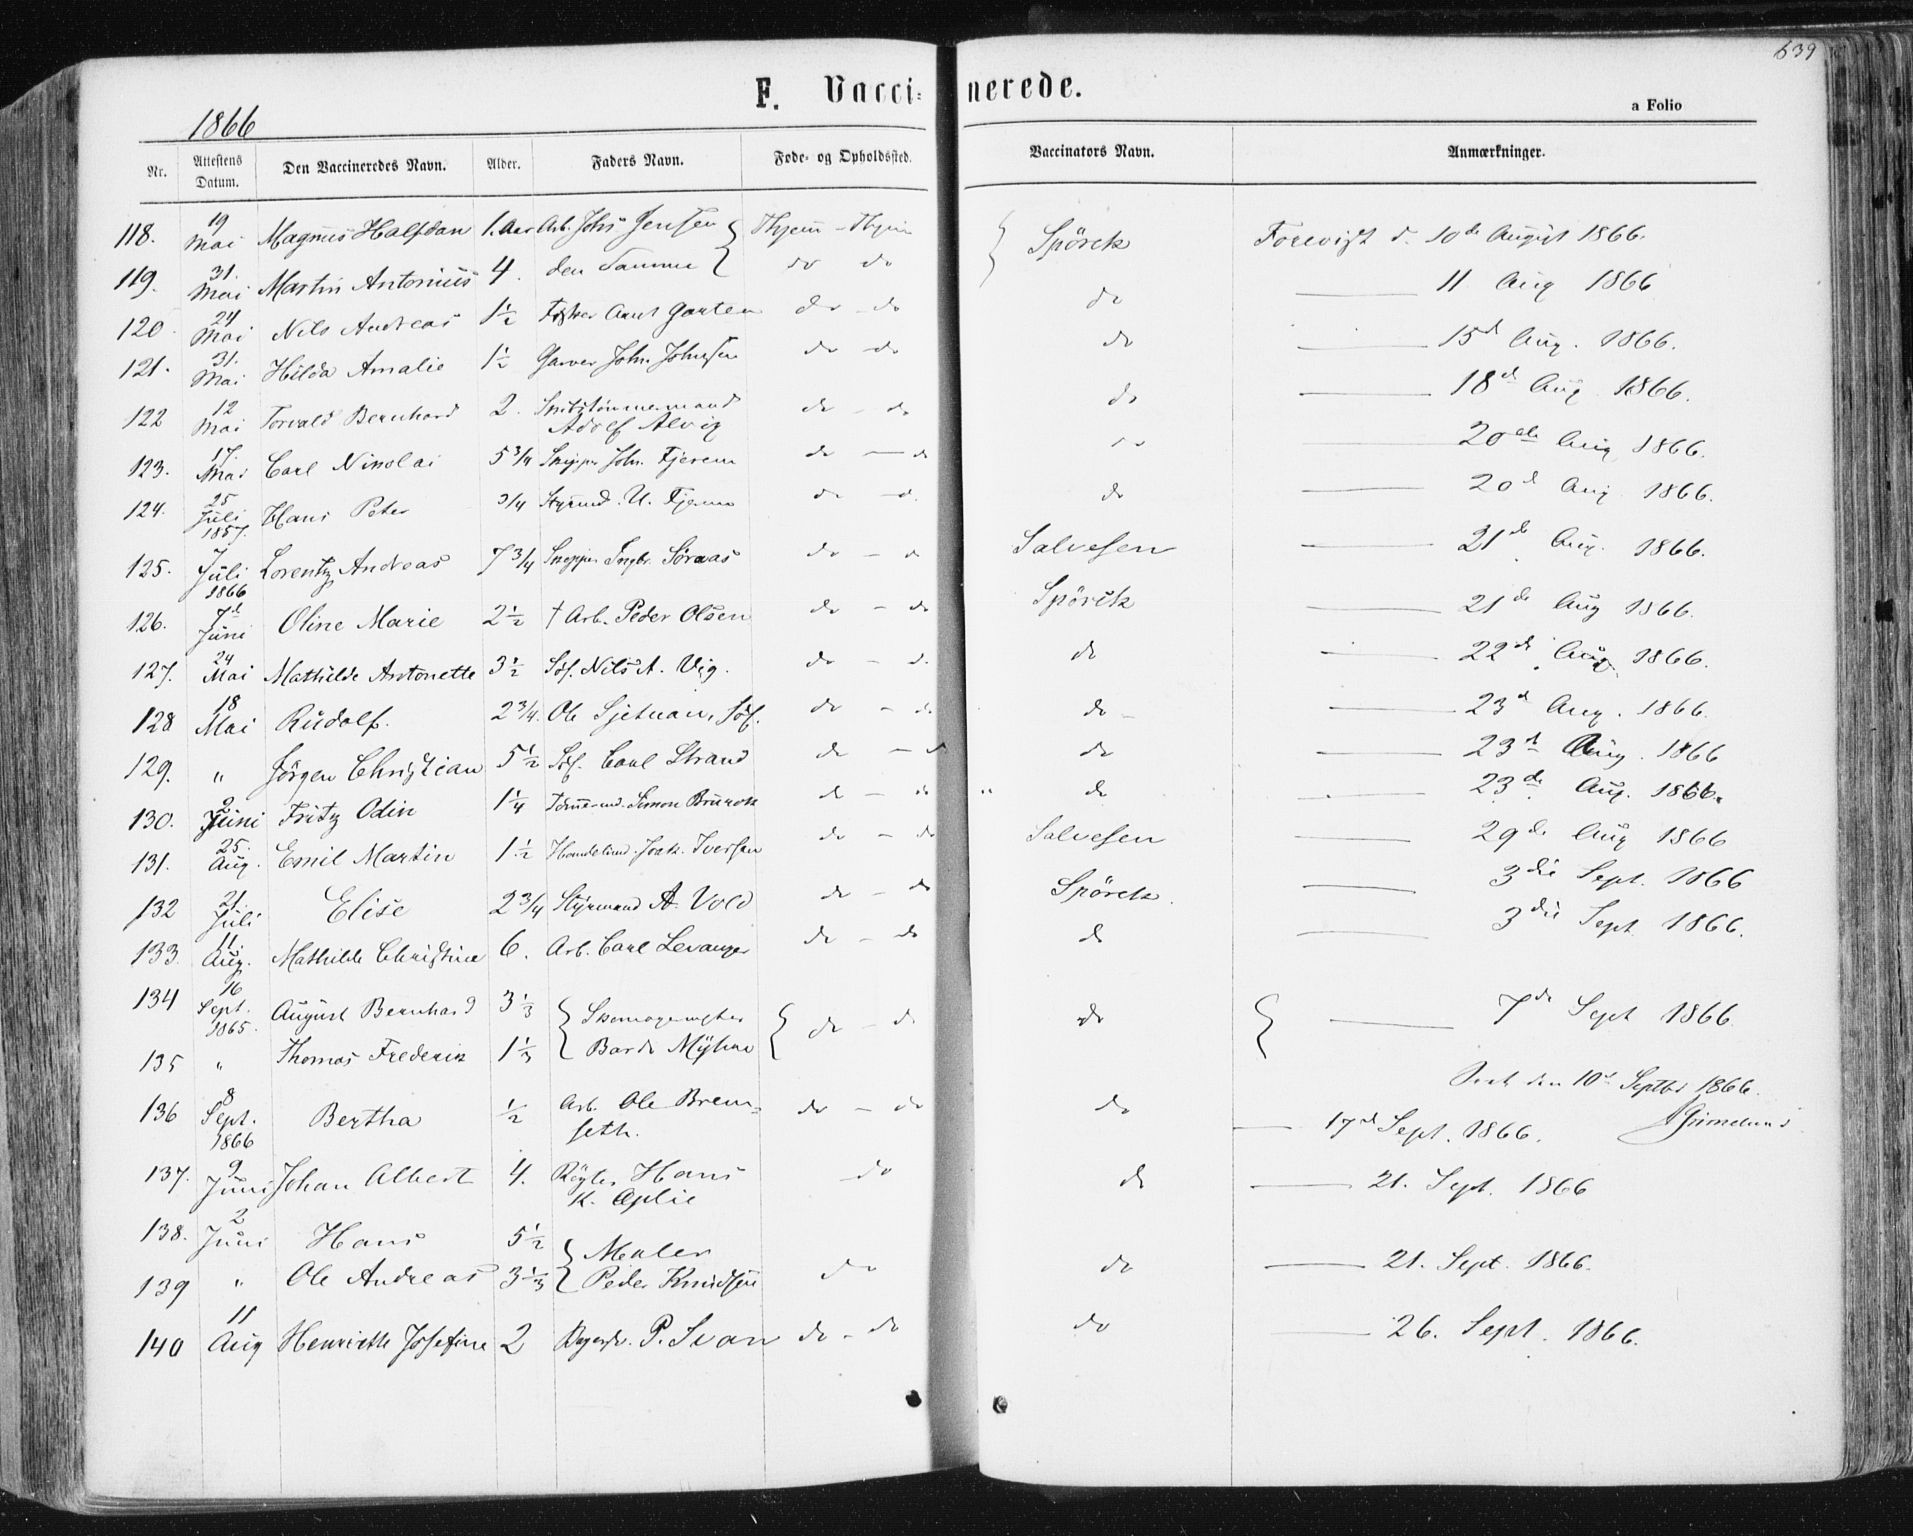 639
F. Vacci=nerede.
a Folio
1866
Nr. Attestens Datum. Den Vaccineredes Navn. Alder. Faders Navn. Føde- og Opholdssted. Vaccinators Navn. Anmærkninger.
118. 19 Mai Magnus Halfdan 1. Aar Arb. Johs Jensen Spörck Forevist d. 10de August 1866.
119. 31. Mai Martin Antonius 4. den Samme do do 11 Aug 1866
120 24 Mai Nils Andreas 1½ Arnt Garten do - do do 15d Aug. 1866.
121. 31. Mai Hilda Amalie 1½ Garver John Johnsen do - do do 18d Aug 1866.
122 12 Mai Torvald Bernhard 2. do - do do 20de Aug 1866.
Adolf Alvig
123. 17. Mai Carl Nikolai 5¾ Joh. Fjerem do - do do 20d Aug 1866.
124. 25 Juli 1857. Hans Peter 3/4 Styrmd. do - d. do 21de Aug. 1866.
125. Juli Lorentz Andreas 7¾ Ingbr. do - do Salvesen 21de Aug 1866.
1866
126. 7d Juni Oline Marie 2½ † Arb. Peder Olsen do - do Spörck 22de Aug 1866.
127. 24 Mai Mathilde Antonette 3½ Söf. Nils A. Vig. do - d. do 23d Aug. 1866.
128 18 Mai Rudolf. 2¾. Ole Söf. do - do do 23d Aug. 1866
129. " Jörgen Christian 5½ Söf. Carl Strand do - d do 23de Aug. 1866.
130. 2 Juni Fritz Odin 1¼ Simon do - do " do 29de Aug 1866
131. 25. Aug. Emil Martin 1½ Iversen do - do Salvesen 3die Sept. 1866
132 21. Juli Elise 2¾ Styrmand A. Vold do - do Spörck. 3die Sept 1866.
133. 11. Aug. Mathilde Christine 6. Arb. Carl Levanger do - do do
134 16 Sept. 1865. August Bernhard 3⅓ Skomagermester do - do do 7de Sept 1866
135 " Thomas Frederik 1⅓ Bardo Myhre
den 10de Septbr 1866.
136 8 Sept. 1866 Bertha ½ Arb. Ole Brem= do - do do 17d Sept. 1866. Grimelund
seth.
137. 9 Juni Johan Albert 4. Hans do do 21. Sept. 1866
K. Aplie
138. 2 Juni Hans 5½ Maler
139 " Ole Andreas 3⅓ Peder Knudsen do do 21. Sept. 1866.
140 11 Aug Henriette Josefine 2 P. Svan do - do do 26. Sept. 1866.